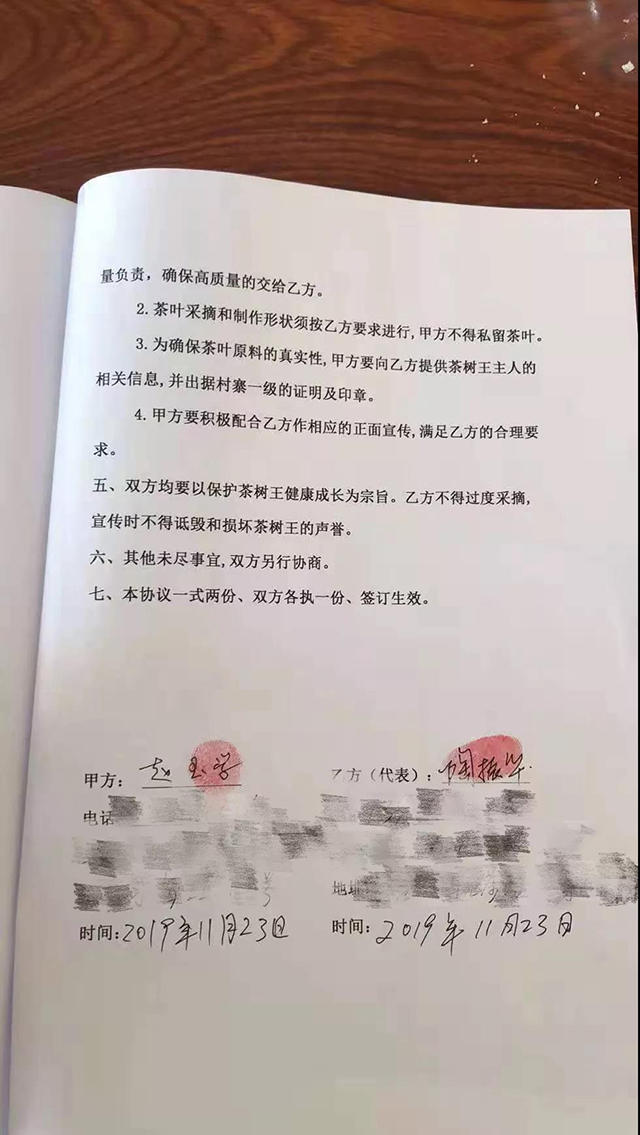 量负责，确保高质量的交给乙方。
2.茶叶采摘和制作形状须按乙方要求进行,甲方不得私留茶叶。
3.为确保茶叶原料的真实性,甲方要向乙方提供茶树王主人的
相关信息,并出据村寨一级的证明及印章。
4.甲方要积极配合乙方作相应的正面宣传,满足乙方的合理要
求。
五、双方均要以保护茶树王健康成长为宗旨。乙方不得过度采摘,
宣传时不得诋毁和损坏茶树王的声誉。
六、其他未尽事宜,双方另行协商。
七、本协议一式两份、双方各执一份、签订生效。
甲方：赵玉学
乙方（代表）：陶振华
电话
地址
时间:2019年11月23日
时间:2019年11月23日